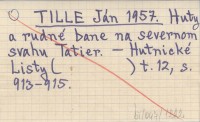 TILLE Ján 1957. Huty
a rudné bane na severnom
svahu Tatier. – Hutnické
Listy ( ) t. 12, s.
913-915.